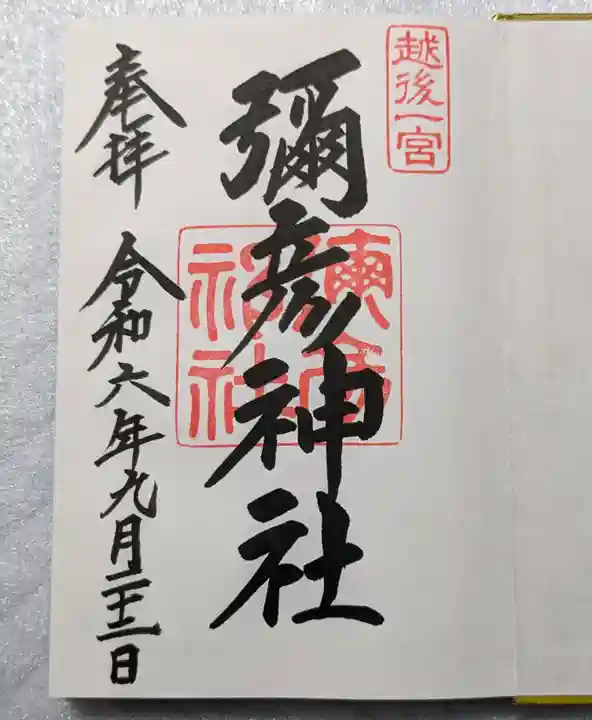 越後一宮
彌彦神社
彌彦
神社
奉拝
令和六年九月二十二日